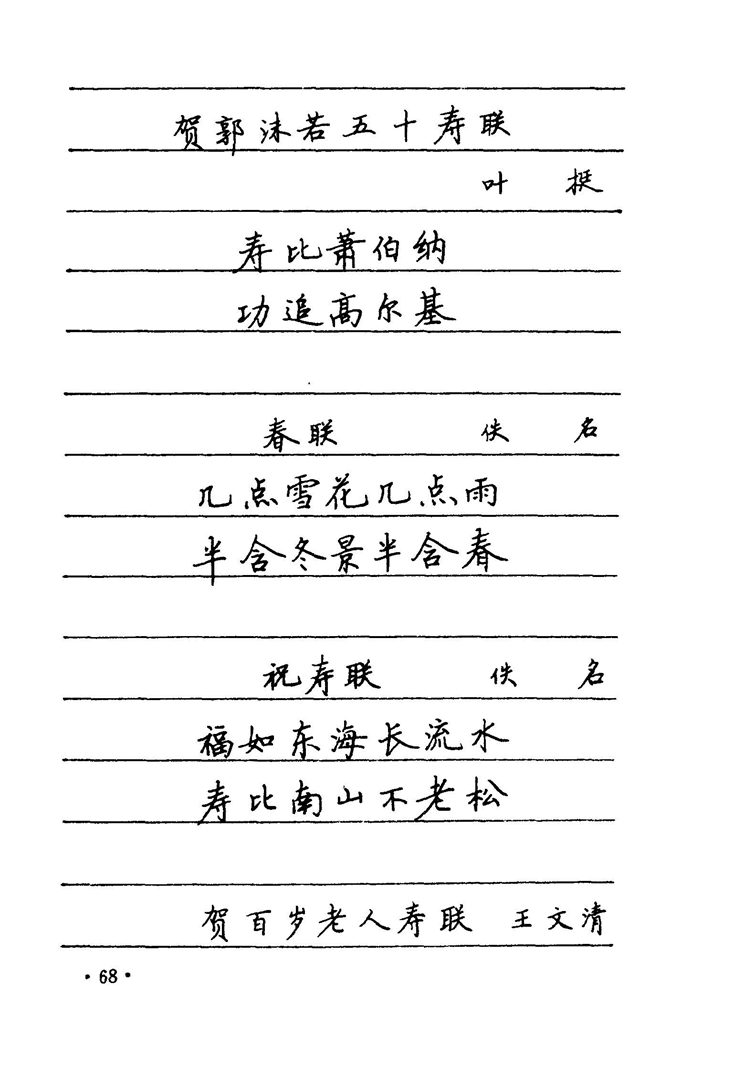 贺郭沫若五十寿联
叶 挺
寿比萧伯纳
功追高尔基
春联 佚 名
几点雪花几点雨
半含冬景半含春
祝寿联 佚 名
福如东海长流水
寿比南山不老松
贺百岁老人寿联 王文清
·68·